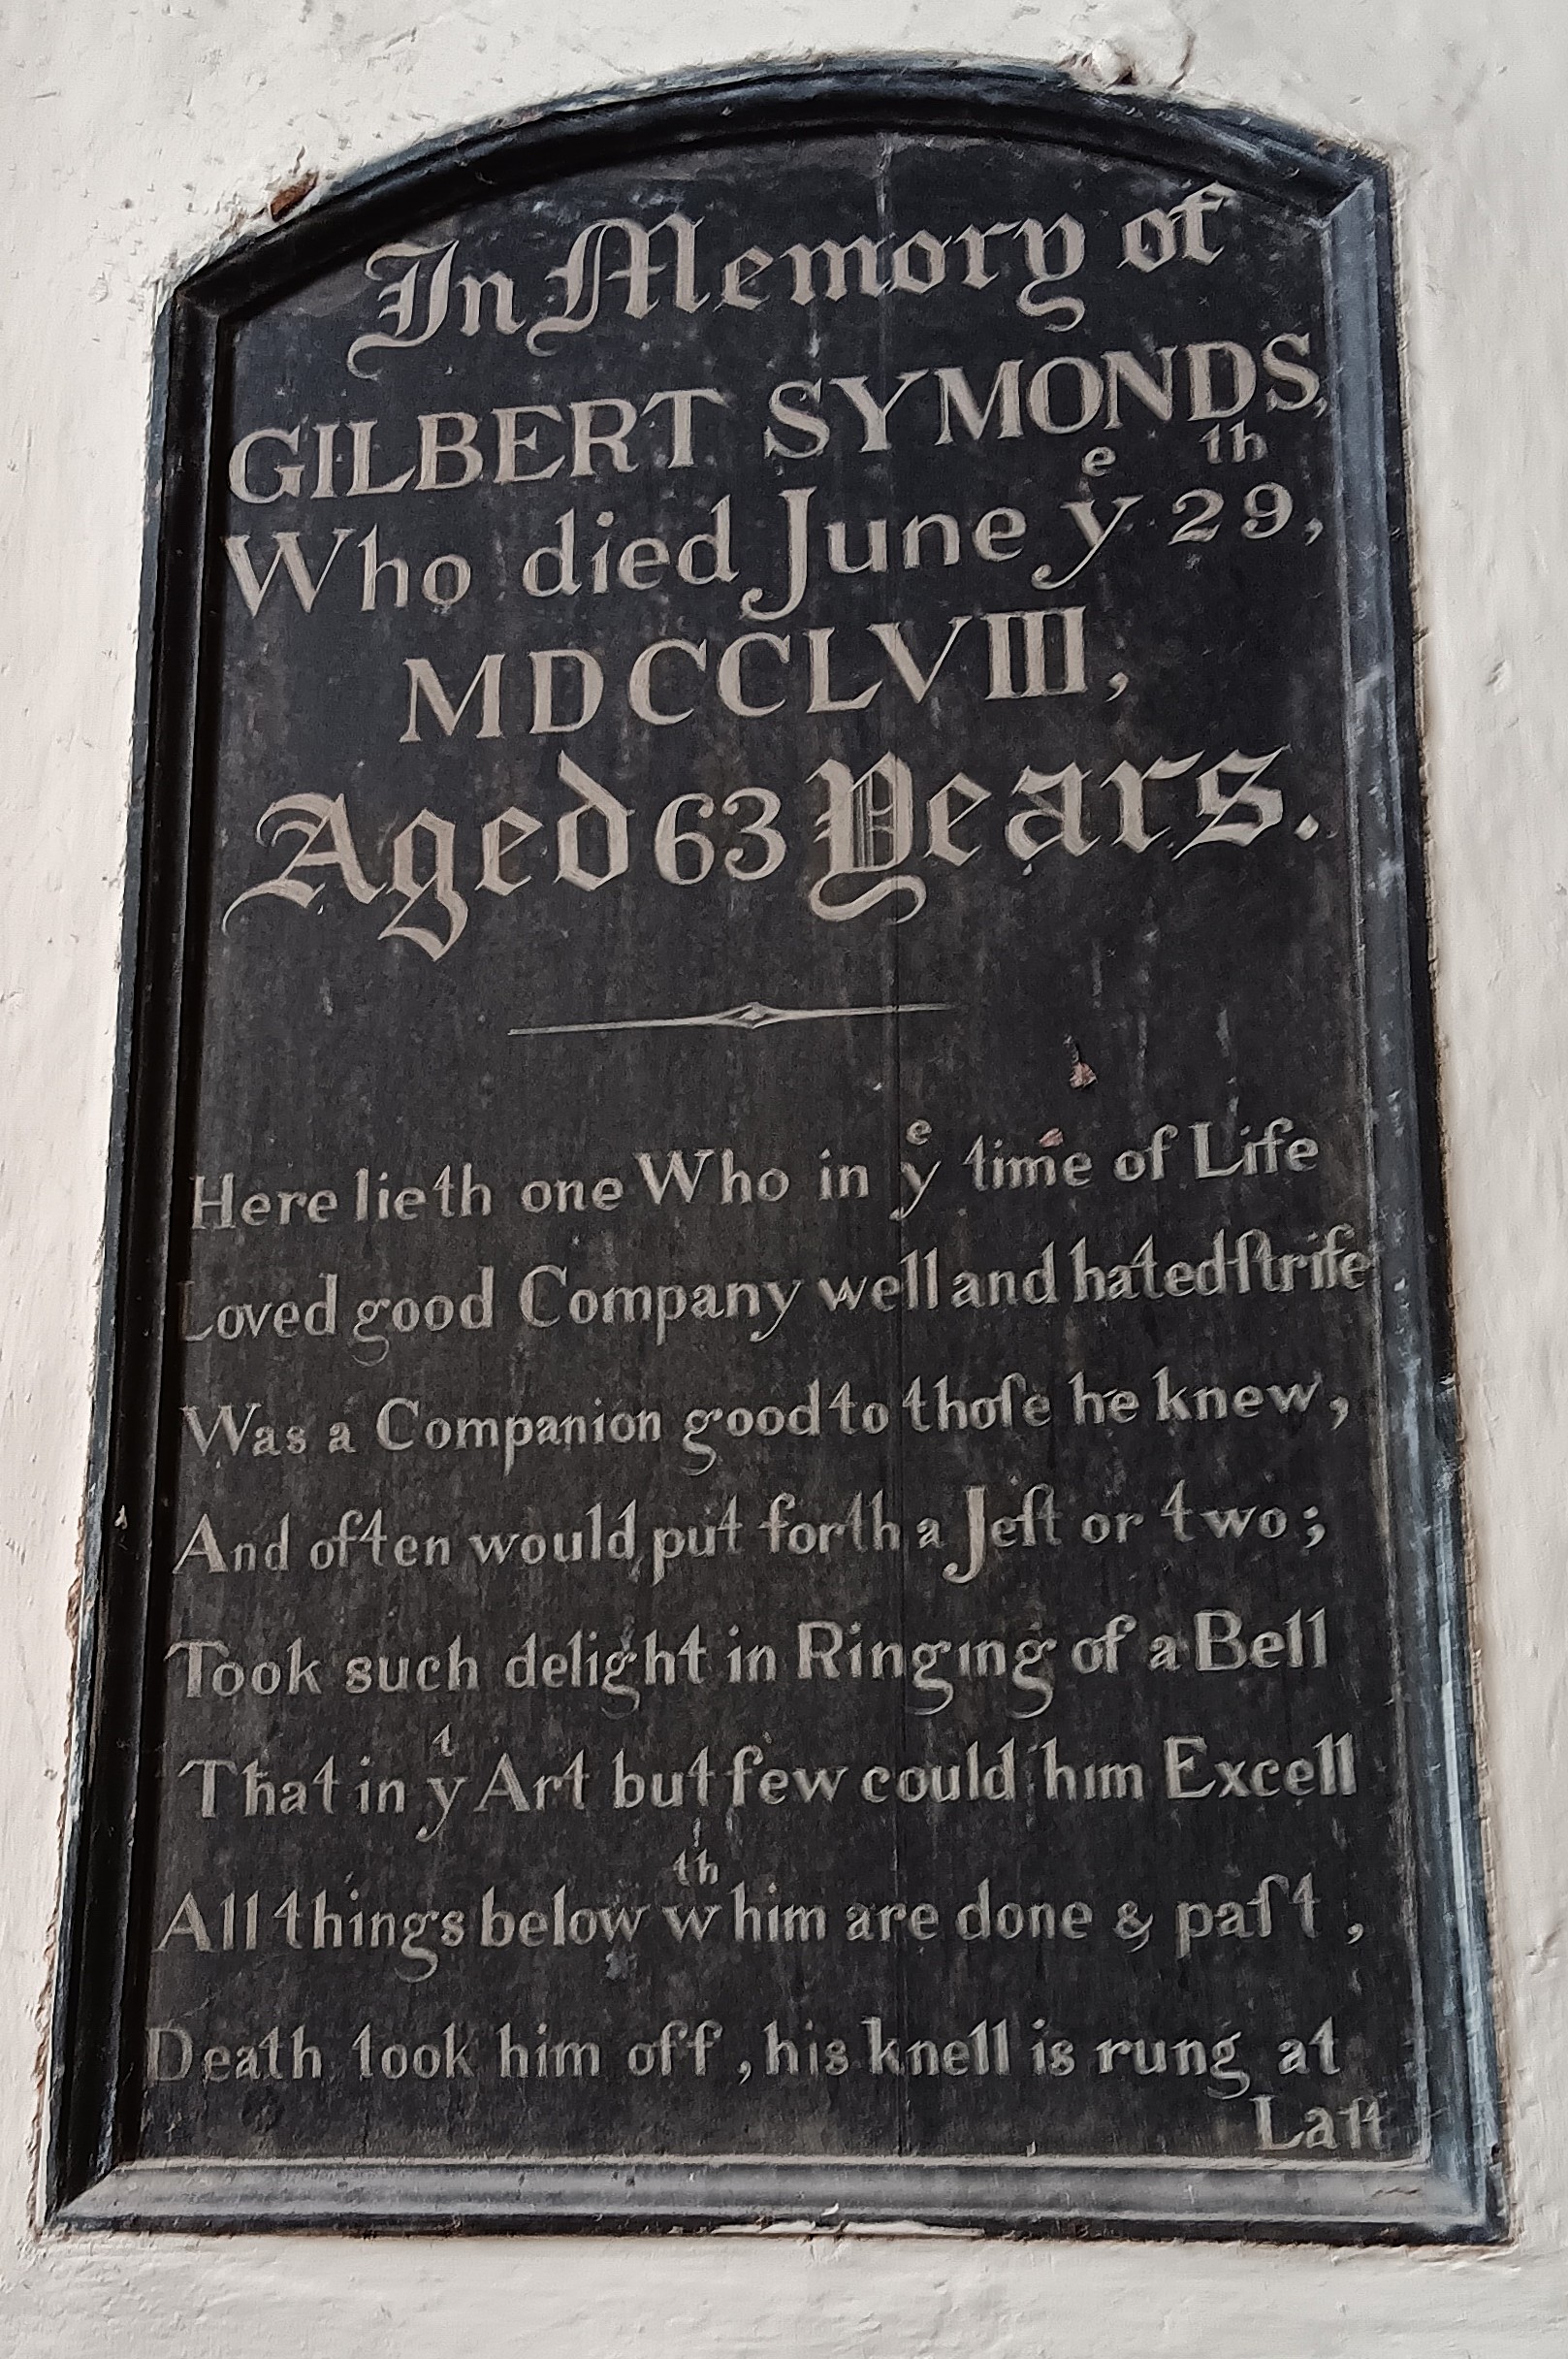 In Memory of
GILBERT SYMONDS,
Who died June yᵉ 29ᵗʰ,
MDCCLVIII,
Aged 63 Years.
Here lieth one Who in yᵉ time of Life
Loved good Company well and hated ſtrife
Was a Companion good to thoſe he knew,
And often would put forth a Jeſt or two;
Took such delight in Ringing of a Bell
That in yᵗ Art but few could him Excell
All things below wᵗʰ him are done & paſt,
Death took him off, his knell is rung at
Laſt